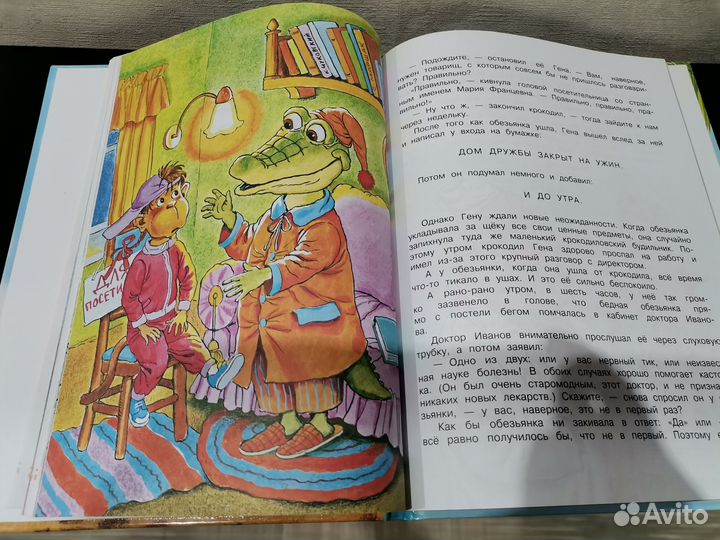 К. ЧУКОВСКИЙ
ДЛЯ
ПОСЕТИ
— Подождите, — остановил её Гена. — Вам, наверное,
нужен товарищ, с которым совсем бы не пришлось разговари-
вать? Правильно?
«Правильно, — кивнула головой посетительница со стран-
ным именем Мария Францевна. — Правильно, правильно, пра-
вильно!»
— Ну что ж, — закончил крокодил, — тогда зайдите к нам
через недельку.
После того как обезьянка ушла, Гена вышел вслед за ней
и написал у входа на бумажке:
ДОМ ДРУЖБЫ ЗАКРЫТ НА УЖИН.
Потом он подумал немного и добавил:
И ДО УТРА.
Однако Гену ждали новые неожиданности. Когда обезьянка
укладывала за щёку все свои ценные предметы, она случайно
запихнула туда же маленький крокодиловский будильник. По-
этому утром крокодил Гена здорово проспал на работу и
имел из-за этого крупный разговор с директором.
А у обезьянки, когда она ушла от крокодила, всё время
что-то тикало в ушах. И это её сильно беспокоило.
А рано-рано утром, в шесть часов, у неё так гром-
ко зазвенело в голове, что бедная обезьянка пря-
мо с постели бегом помчалась в кабинет доктора Ивано-
ва.
Доктор Иванов внимательно прослушал её через слуховую
трубку, а потом заявил:
— Одно из двух: или у вас нервный тик, или неизвес
ная науке болезнь! В обоих случаях хорошо помогает касто
ка. (Он был очень старомодным, этот доктор, и не призна
никаких новых лекарств.) Скажите, — снова спросил он у
зьянки, — у вас, наверное, это не в первый раз?
Как бы обезьянка ни закивала в ответ: «Да» или
всё равно получилось бы, что не в первый. Поэтому
Avito